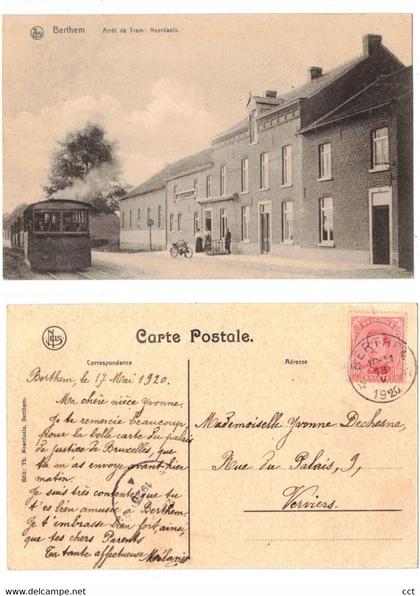 Berthem Arrêt de Tram: Neerdaels.
Carte Postale.
Correspondance
Adresse
Berthem, le 17 Mai 1920.
Ma chère nièce Yvonne
Je te remercie beaucoup
pour la belle carte du palais
de justice de Bruxelles, que
tu m as envoyé avant hier
matin.
Je suis très contente que tu
t'es bien amusée à Berthem.
Je t'embrasse bien fort, ainsi
que tes chers Parents
Ta tante affectueuse Mélanie
Mademoiselle Yvonne Dechesne
Rue du Palais, 9,
Verviers.
Edit: Th. Neerdaels, Berthem.
BERTHEM
10-11
18
V
1920
delcampe.net
the_seller